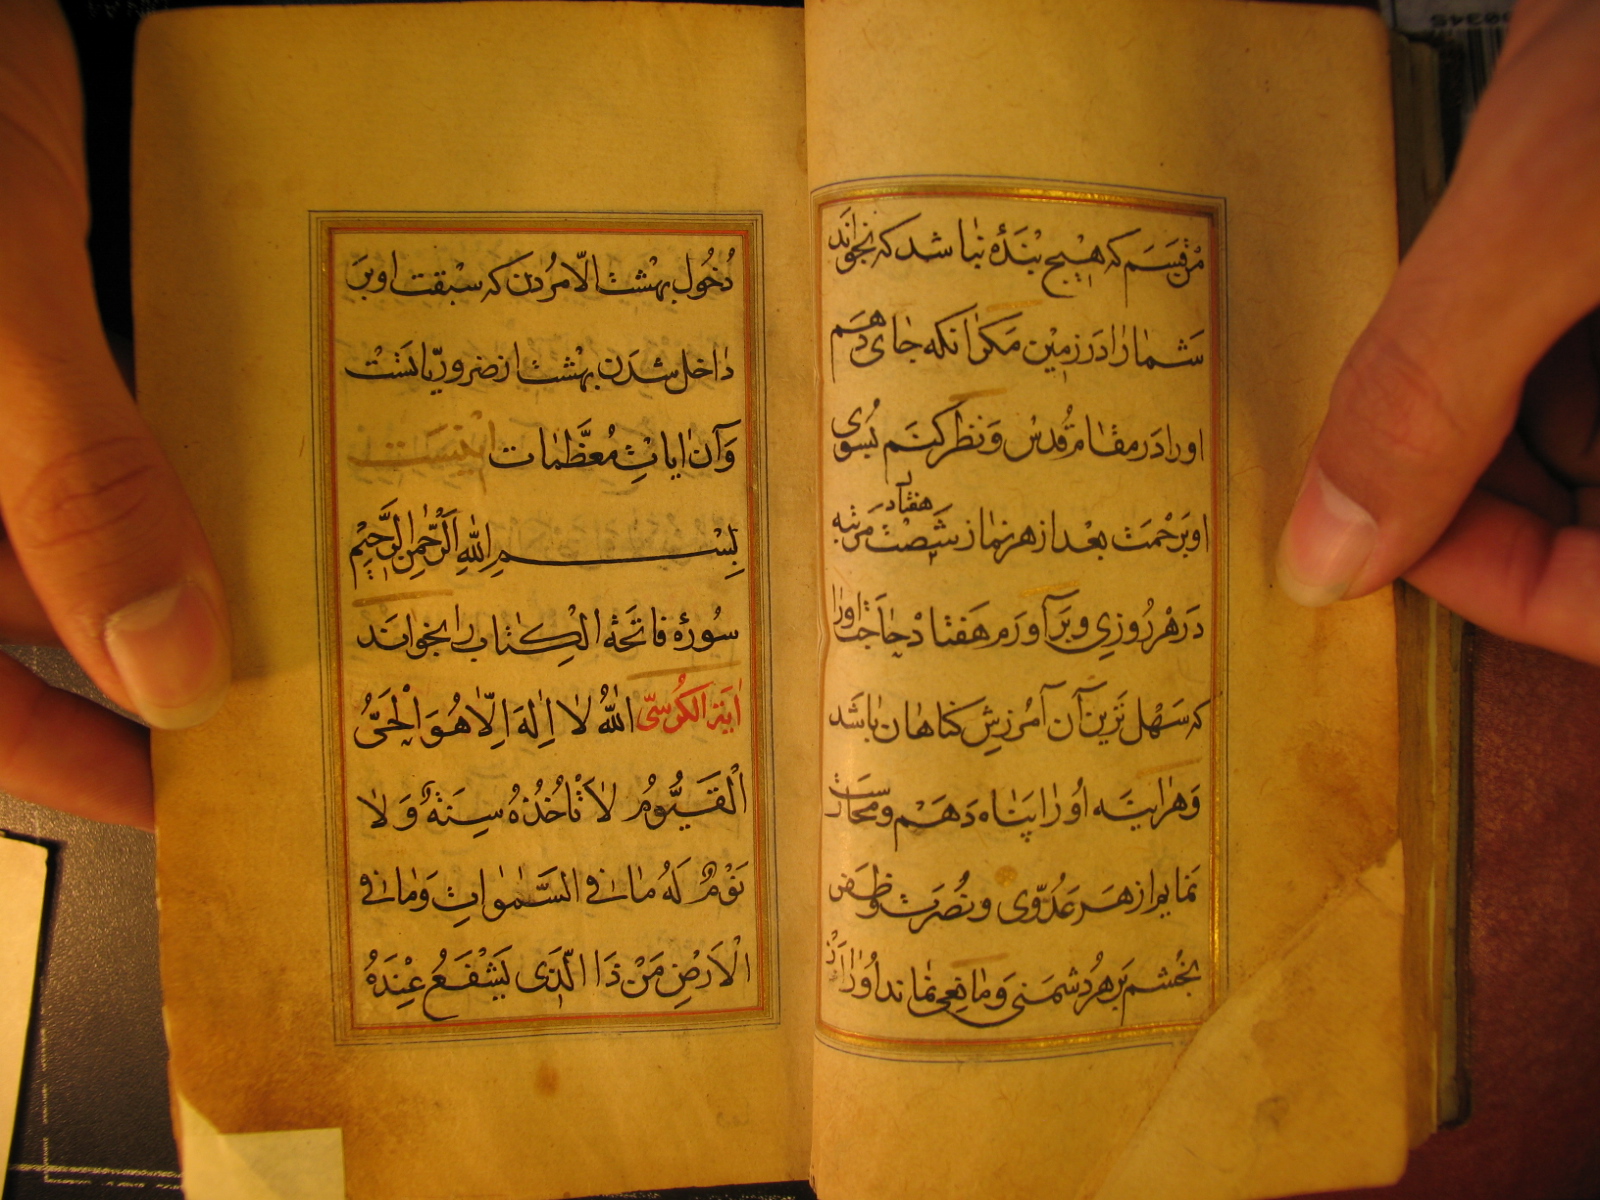 من قسم که هیچ بندهٔ نباشد که بخواند
شما را در زمین مکر آنکه جای دهم
او را در مقام قدس و نظر کنم بسوی
او برحمت بعد از هر نماز شصت مرتبه
هفتاد
در هر روزی و برآورم هفتاد حاجت او را
که سهل ترین آن آمرزش کناهان باشد
و هراینه او را پناه دهم و محارست
نمایم از هر عدوّی و نصرت و ظفر
بخشم بر هر دشمنی و مانعی نماند او را از
دُخُول بهشت الّا مردن که سبقت او بر
داخل شدن بهشت از ضروریّاتست
و آن ایاتِ مُعَظَّمات اینست
بِسْمِ اللهِ الرَّحْمٰنِ الرَّحِیْمِ
سورهٔ فاتحة الکتاب را بخواند
اٰیَة الکُرسّی اَللهُ لا اِلٰهَ اِلّا هُوَ الْحَیُّ
الْقَیُّومُ لاٰ تَاْخُذُهُ سِنَةٌ وَ لاٰ
نَوْمٌ لَهُ ماٰ فِی السَّمٰواتِ وَ ماٰ فِی
الْاَرْضِ مَنْ ذَا الَّذی یَشْفَعُ عِنْدَهُ